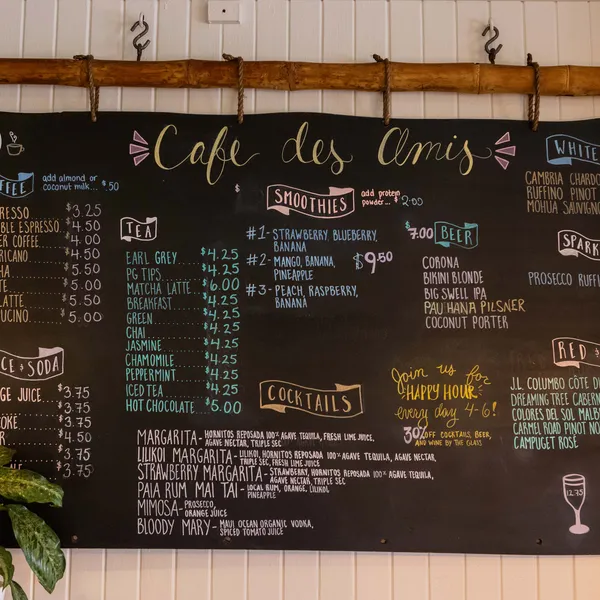 Cafe des Amis
add almond or
coconut milk... $.50
$3.25
$4.50
$4.00
$4.50
$5.50
$5.00
$5.50
$5.00
SODA
JUICE
$3.75
$3.75
$3.75
$4.50
$3.75
$3.75
TEA
EARL GREY $4.25
PG TIPS $4.25
MATCHA LATTE $6.00
BREAKFAST $4.25
GREEN $4.25
CHAI $4.25
JASMINE $4.25
CHAMOMILE $4.25
PEPPERMINT $4.25
ICED TEA $4.25
HOT CHOCOLATE $5.00
SMOOTHIES
add protein
powder... $2.00
#1- STRAWBERRY, BLUEBERRY,
BANANA
#2- MANGO, BANANA,
PINEAPPLE
$9.50
#3- PEACH, RASPBERRY,
BANANA
$7.00 BEER
CORONA
BIKINI BLONDE
BIG SWELL IPA
PAU HANA PILSNER
COCONUT PORTER
Join us for
"HAPPY HOUR"
every day 4-6!
30% OFF COCKTAILS, BEER,
AND WINE BY THE GLASS
COCKTAILS
MARGARITA- HORNITOS REPOSADA 100% AGAVE TEQUILA, FRESH LIME JUICE,
AGAVE NECTAR, TRIPLE SEC
LILIKOI MARGARITA- HORNITOS REPOSADA 100% AGAVE TEQUILA, AGAVE NECTAR,
TRIPLE SEC, FRESH LIME JUICE
STRAWBERRY MARGARITA- STRAWBERRY, HORNITOS REPOSADA 100% AGAVE TEQUILA,
AGAVE NECTAR, TRIPLE SEC
PAIA RUM MAI TAI- LOCAL RUM, ORANGE, LILIKOI
PINEAPPLE
MIMOSA- PROSECCO,
ORANGE JUICE
BLOODY MARY- MAUI OCEAN ORGANIC VODKA,
SPICED TOMATO JUICE
WHITE
CAMBRIA CHARDO
RUFFINO PINOT
MOHUA SAUVIGN
SPARK
PROSECCO RUFFI
RED
J.L. COLUMBO CÔTE DU
DREAMING TREE CABERN
COLORES DEL SOL MALB
CARMEL ROAD PINOT NO
CAMPUGET ROSE
12.75